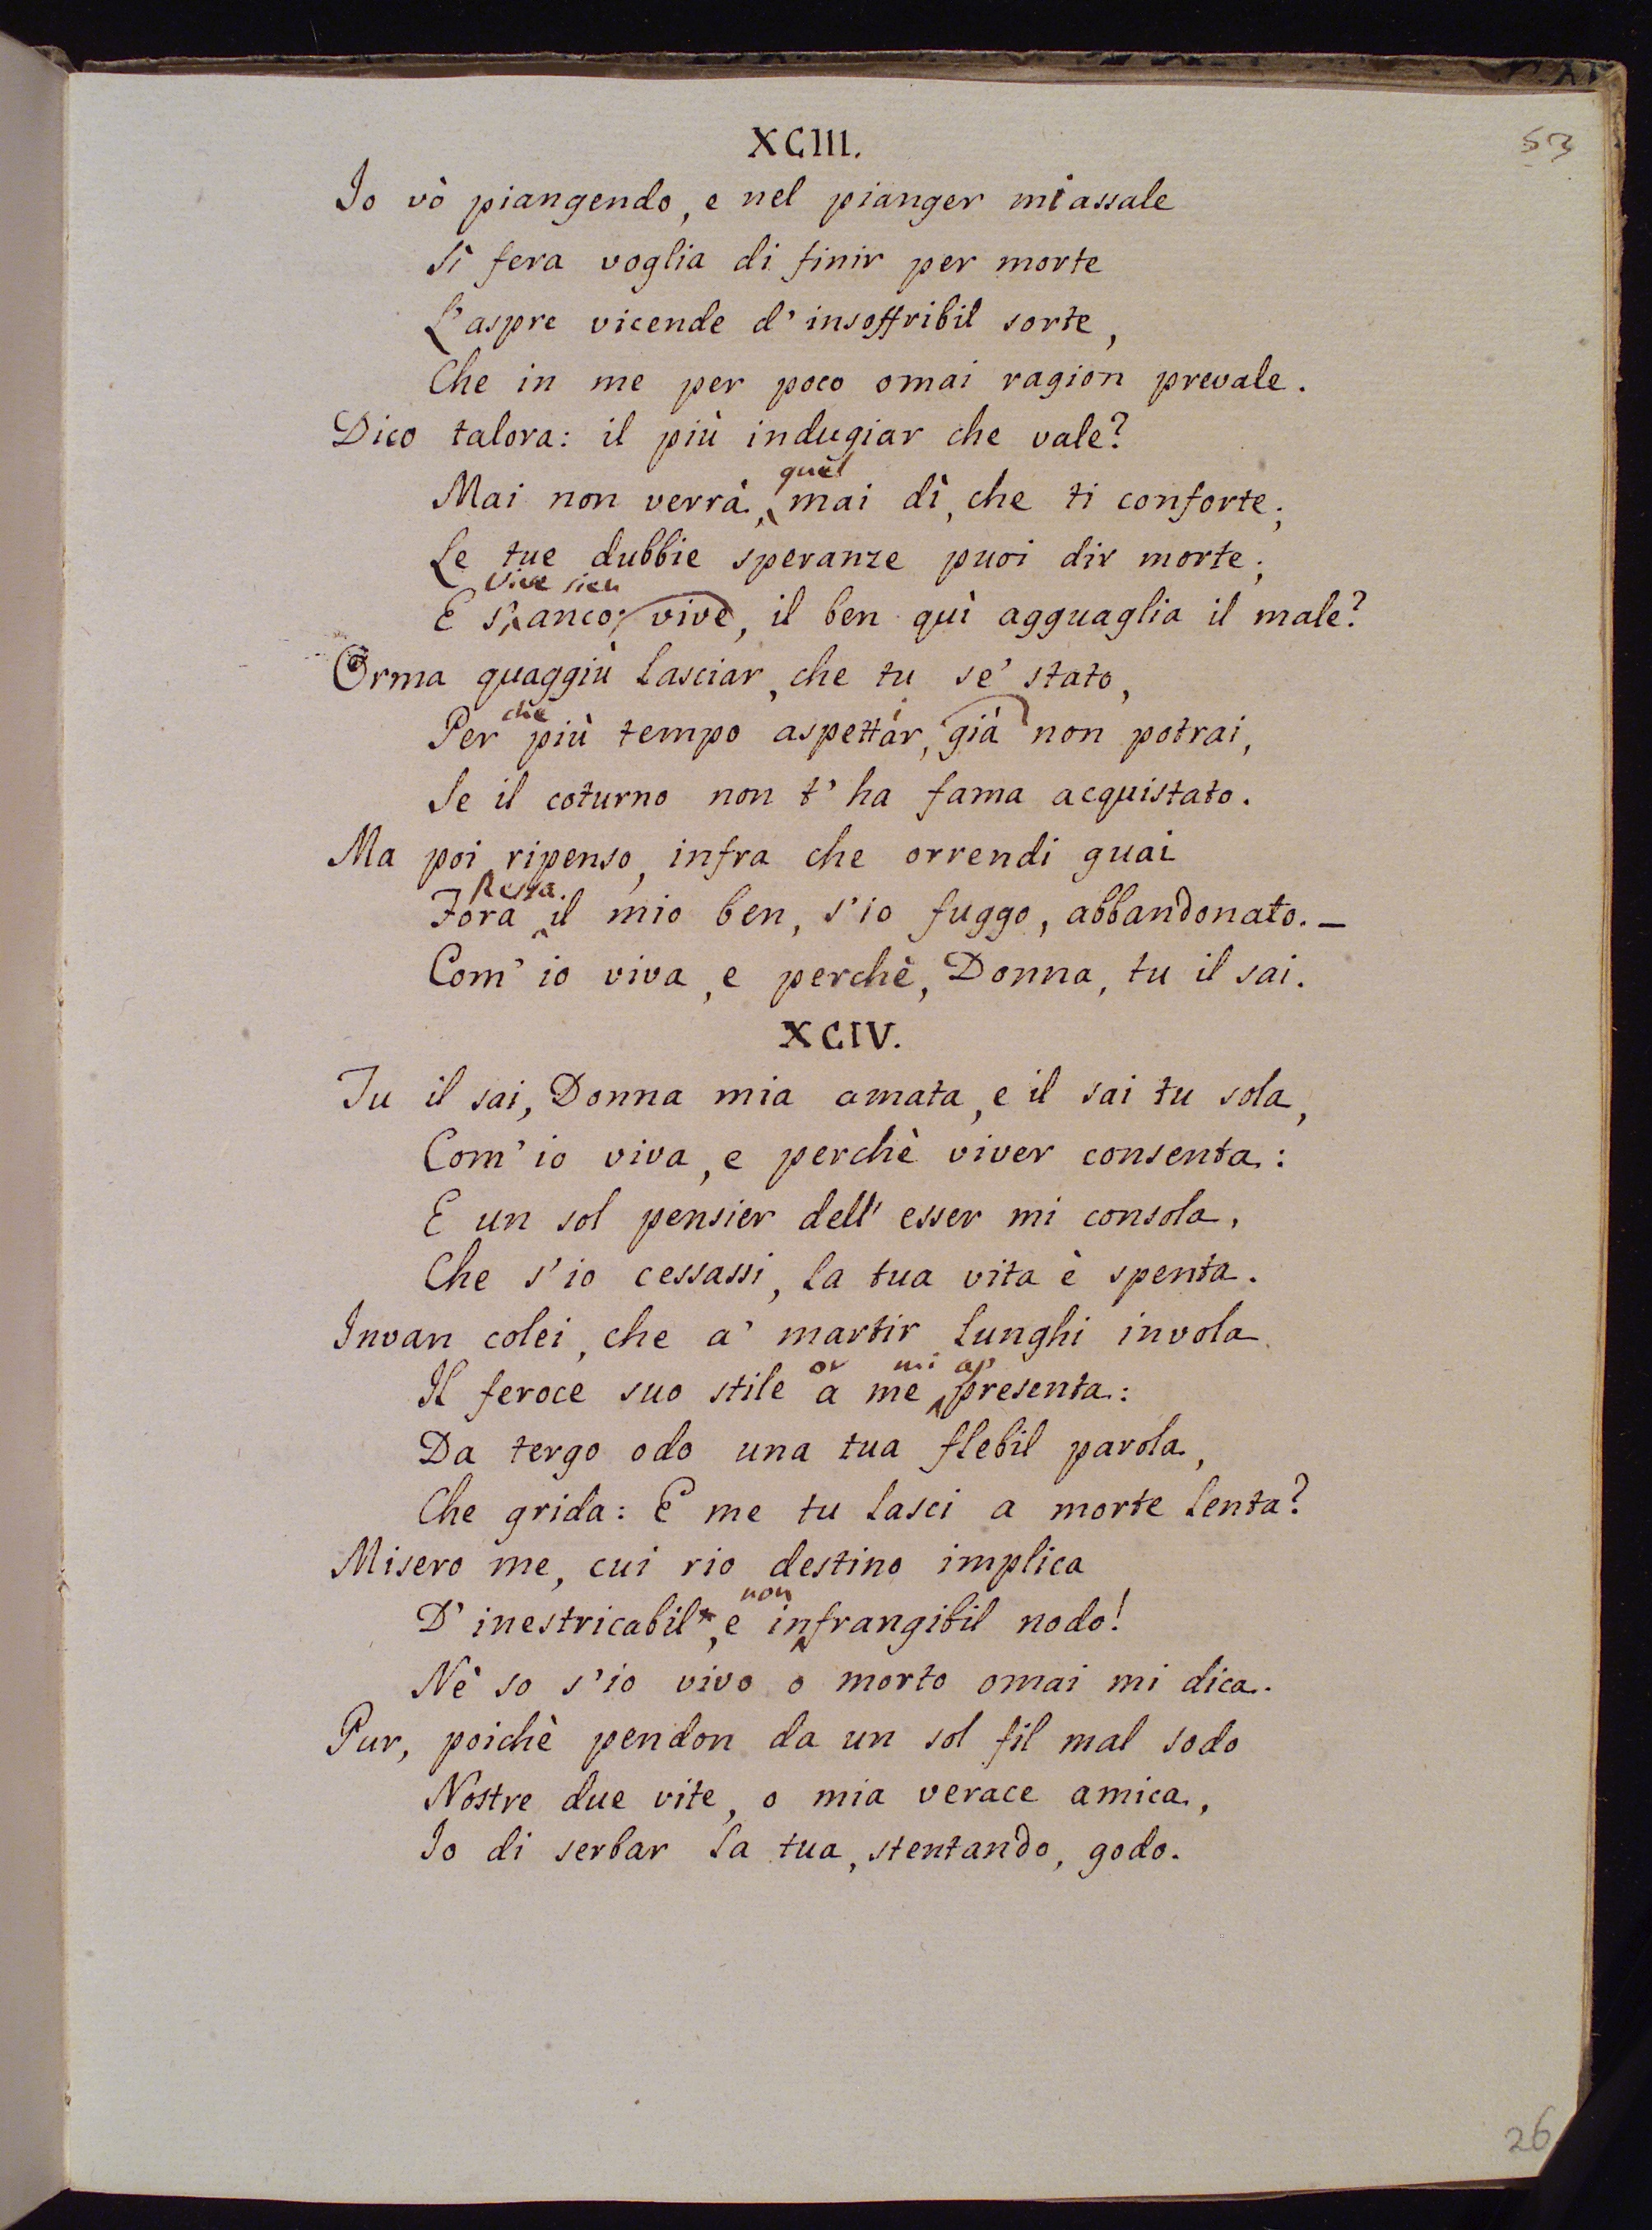 53
XCIII.
Io vò piangendo, e nel pianger mi assale
Sì fera voglia di finir per morte
L'aspre vicende d'insoffribil sorte,
Che in me per poco omai ragion prevale.
Dico talora: il più indugiar che vale?
quel
Mai non verrà, mai dì, che ti conforte;
Le tue dubbie speranze puoi dir morte;
Vive sien
E s'anco vive, il ben quì agguaglia il male?
Orma quaggiù lasciar, che tu se' stato,
chè
Per più tempo aspettar, già non potrai,
Se il coturno non t'ha fama acquistato.
Ma poi ripenso, infra che orrendi guai
Resta
Fora il mio ben, s'io fuggo, abbandonato. —
Com'io viva, e perchè, Donna, tu il sai.
XCIV.
Tu il sai, Donna mia amata, e il sai tu sola,
Com'io viva, e perchè viver consenta:
E un sol pensier dell'esser mi consola,
Che s'io cessassi, la tua vita è spenta.
Invan colei, che a' martir lunghi invola
or mi ap
Il feroce suo stile a me presenta:
Da tergo odo una tua flebil parola,
Che grida: E me tu lasci a morte lenta?
Misero me, cui rio destino implica
non
D'inestricabil, e infrangibil nodo!
Nè so s'io vivo o morto omai mi dica.
Pur, poichè pendon da un sol fil mal sodo
Nostre due vite, o mia verace amica,
Io di serbar la tua, stentando, godo.
26